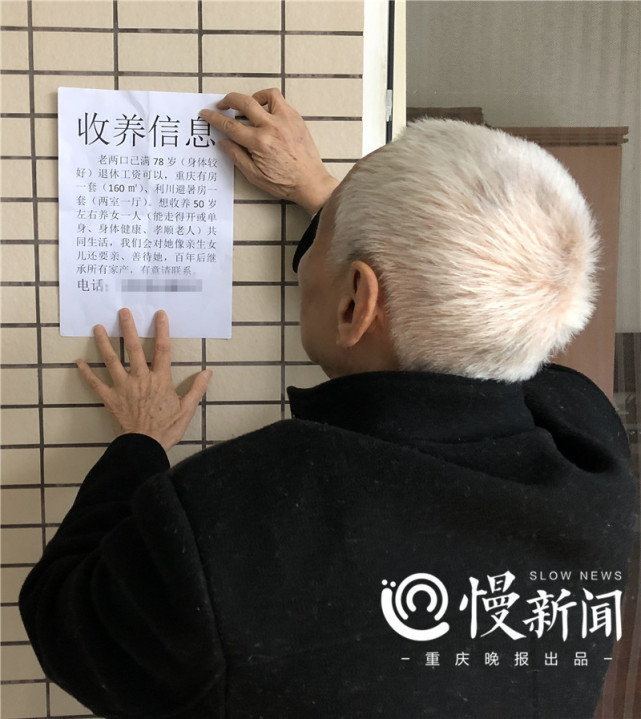 收养信息
老两口已满 78 岁（身体较
好）退休工资可以，重庆有房
一套（160 ㎡）、利川避暑房一
套（两室一厅）。想收养 50 岁
左右养女一人（能走得开或单
身、身体健康、孝顺老人）共
同生活，我们会对她像亲生女
儿还要亲、善待她，百年后继
承所有家产。有意请联系。
电话：
SLOW NEWS
慢新闻
－重庆晚报出品－